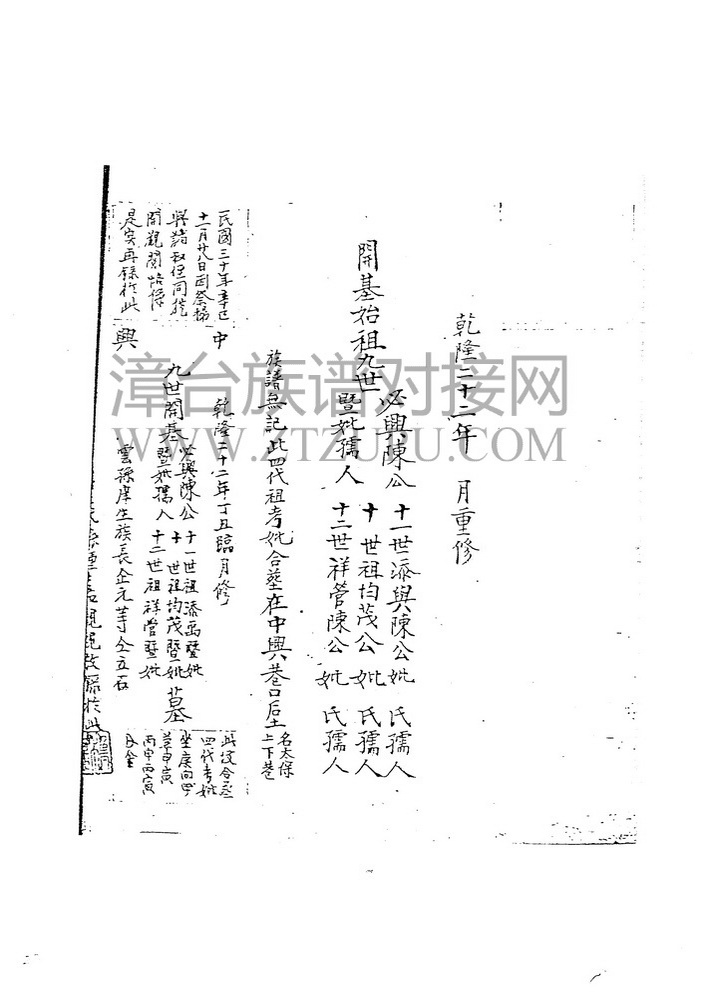 乾隆二十二年 月重修
開基始祖九世
必興陳公
暨妣孺人
十一世添興陳公妣 氏孺人
十世祖均茂公妣 氏孺人
十二世祥管陳公妣 氏孺人
族譜無記此四代祖考妣合墓在中興巷口后土
名太保
上下巷
中
興
乾隆二十二年丁丑臨月修
九世開基
必興陳公
暨妣孺人
十一世祖添禹暨妣
十世祖均茂暨妣
十二世祖祥管暨妣
墓
雲孫庠生族長企元等仝立石
民國三十年辛巳
十一月廿八日因祭掃
與諸叔侄同往
開觀閱
是實再錄於此
此坟合墓
四代考妣
坐庚向甲
丙申丙寅
漳台族谱对接网
WWW.ZTZUPU.COM